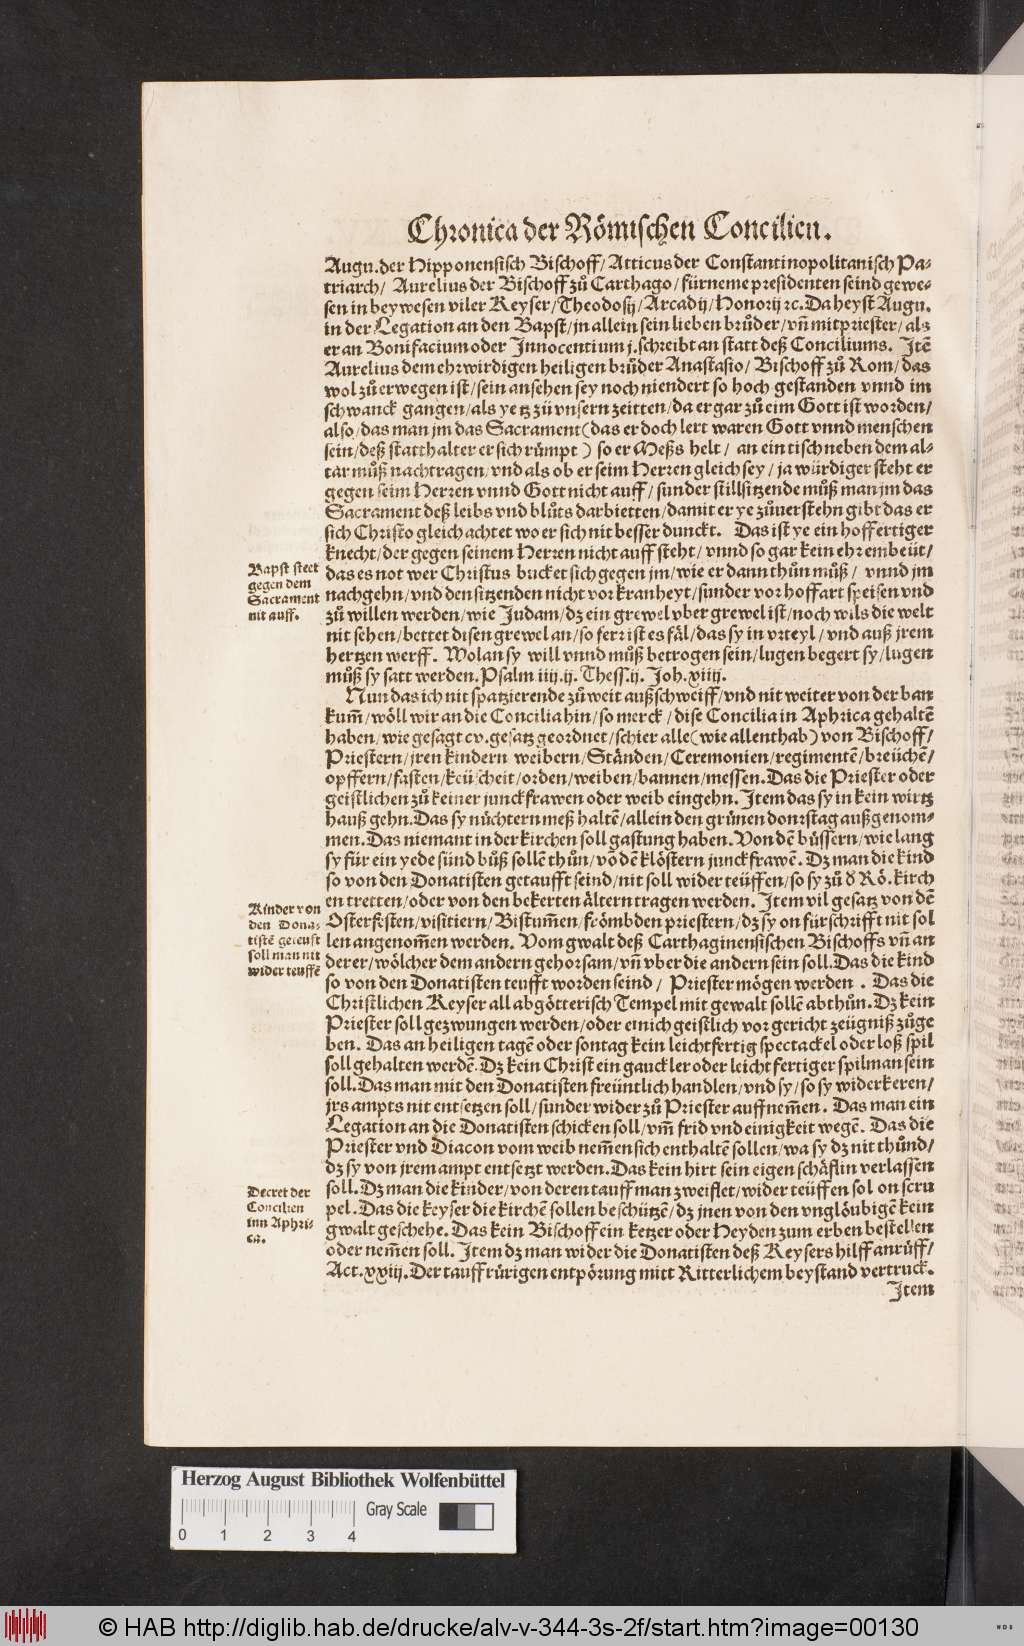 Chronica der Römischen Concilien.
Augu. der Hipponensisch Bischoff/ Atticus der Constantinopolitanisch Pa-
triarch/ Aurelius der Bischoff zů Carthago/ fürneme presidenten seind gewe-
sen in beywesen viler Keyser/ Theodosij/ Arcadij/ Honorij ꝛc. Da heyst Augu.
in der Legation an den Bapst/ jn allein sein lieben brůder/ vñ mitpriester/ als
er an Bonifacium oder Innocentium j. schreibt an statt deß Conciliums. Itẽ
Aurelius dem ehrwirdigen heiligen brůder Anastasio/ Bischoff zů Rom/ das
wol zů erwegen ist/ sein ansehen sey noch niendert so hoch gestanden vnnd im
schwanck gangen/ als yetz zů vnsern zeitten/ da er gar zů eim Gott ist worden/
also/ das man jm das Sacrament (das er doch lert waren Gott vnnd menschen
sein/ deß statthalter er sich růmpt) so er Meßs helt/ an ein tisch neben dem al-
tar můß nachtragen/ vnd als ob er seim Herren gleich sey/ ja würdiger steht er
gegen seim Herren vnnd Gott nicht auff/ sunder stillsitzende můß man jm das
Sacrament deß leibs vnd blůts darbietten/ damit er ye zůuerstehn gibt das er
sich Christo gleich achtet wo er sich nit besser dunckt. Das ist ye ein hoffertiger
knecht/ der gegen seinem Herren nicht auff steht/ vnnd so gar kein ehr embeüt/
das es not wer Christus bucket sich gegen jm/ wie er dann thůn můß/ vnnd jm
nachgehn/ vnd den sitzenden nicht vor kranheyt/ sunder vor hoffart speisen vnd
zů willen werden/ wie Judam/ dz ein grewel vber grewel ist/ noch wils die welt
nit sehen/ bettet disen grewel an/ so ferr ist es fäl/ das sy in vrteyl/ vnd auß jrem
hertzen werff. Wolan sy will vnnd můß betrogen sein/ lugen begert sy/ lugen
můß sy satt werden. Psalm iiij. ij. Thess. ij. Joh. xiiij.
Nun das ich nit spatzierende zů weit außschweiff/ vnd nit weiter von der ban
kum̃/ wöll wir an die Concilia hin/ so merck/ dise Concilia in Aphrica gehaltẽ
haben/ wie gesagt cv. gesatz geordnet/ schier alle (wie allenthab) von Bischoff/
Priestern/ jren kindern weibern/ Ständen/ Ceremonien/ regimentẽ/ breüchẽ/
opffern/ fasten/ keüscheit/ orden/ weiben/ bannen/ messen. Das die Priester oder
geistlichen zů keiner junckfrawen oder weib eingehn. Item das sy in kein wirtz
hauß gehn. Das sy nůchtern meß haltẽ/ allein den grůnen donrstag außgenom-
men. Das niemant in der kirchen soll gastung haben. Von dẽ bůssern/ wie lang
sy für ein yede sünd bůß sollẽ thůn/ võ dẽ klöstern junckfrawẽ. Dz man die kind
so von den Donatisten getaufft seind/ nit soll wider teüffen/ so sy zů ð Rö. kirch
en tretten/ oder von den bekerten ältern tragen werden. Item vil gesatz von dẽ
Osterfesten/ visitiern/ Bistum̃en/ frömbden priestern/ dz sy on fürschrifft nit sol
len angenom̃en werden. Vom gwalt deß Carthaginensischen Bischoffs vñ an
derer/ wölcher dem andern gehorsam/ vñ vber die andern sein soll. Das die kind
so von den Donatisten teufft worden seind/ Priester mögen werden. Das die
Christlichen Keyser all abgötterisch Tempel mit gewalt sollẽ abthůn. Dz kein
Priester soll gezwungen werden/ oder einich geistlich vor gericht zeügniß zůge
ben. Das an heiligen tagẽ oder sontag kein leichtfertig spectackel oder loß spil
soll gehalten werdẽ. Dz kein Christ ein gauckler oder leichtfertiger spilman sein
soll. Das man mit den Donatisten freüntlich handlen/ vnd sy/ so sy widerkeren/
jrs ampts nit entsetzen soll/ sunder wider zů Priester auffnem̃en. Das man ein
Legation an die Donatisten schicken soll/ vm̃ frid vnd einigkeit wegẽ. Das die
Priester vnd Diacon vom weib nem̃en sich enthaltẽ sollen/ wa sy dz nit thůnd/
dz sy von jrem ampt entsetzt werden. Das kein hirt sein eigen schäflin verlassen
soll. Dz man die kinder/ von deren tauff man zweiflet/ wider teüffen sol on scru
pel. Das die keyser die kirchẽ sollen beschützẽ/ dz jnen von den vnglöubigẽ kein
gwalt geschehe. Das kein Bischoff ein ketzer oder Heyden zum erben bestellen
oder nem̃en soll. Item dz man wider die Donatisten deß Keysers hilff anrůff/
Act. xxiij. Der tauff rürigen entpörung mitt Ritterlichem beystand vertruck.
Item
Bapst steet
gegen dem
Sacrament
nit auff.
Kinder von
den Dona-
tistẽ geteufft
soll man nit
wider teuffẽ
Decret der
Concilien
inn Aphri-
ca.
Herzog August Bibliothek Wolfenbüttel
0 1 2 3 4
Gray Scale
© HAB http://diglib.hab.de/drucke/alv-v-344-3s-2f/start.htm?image=00130